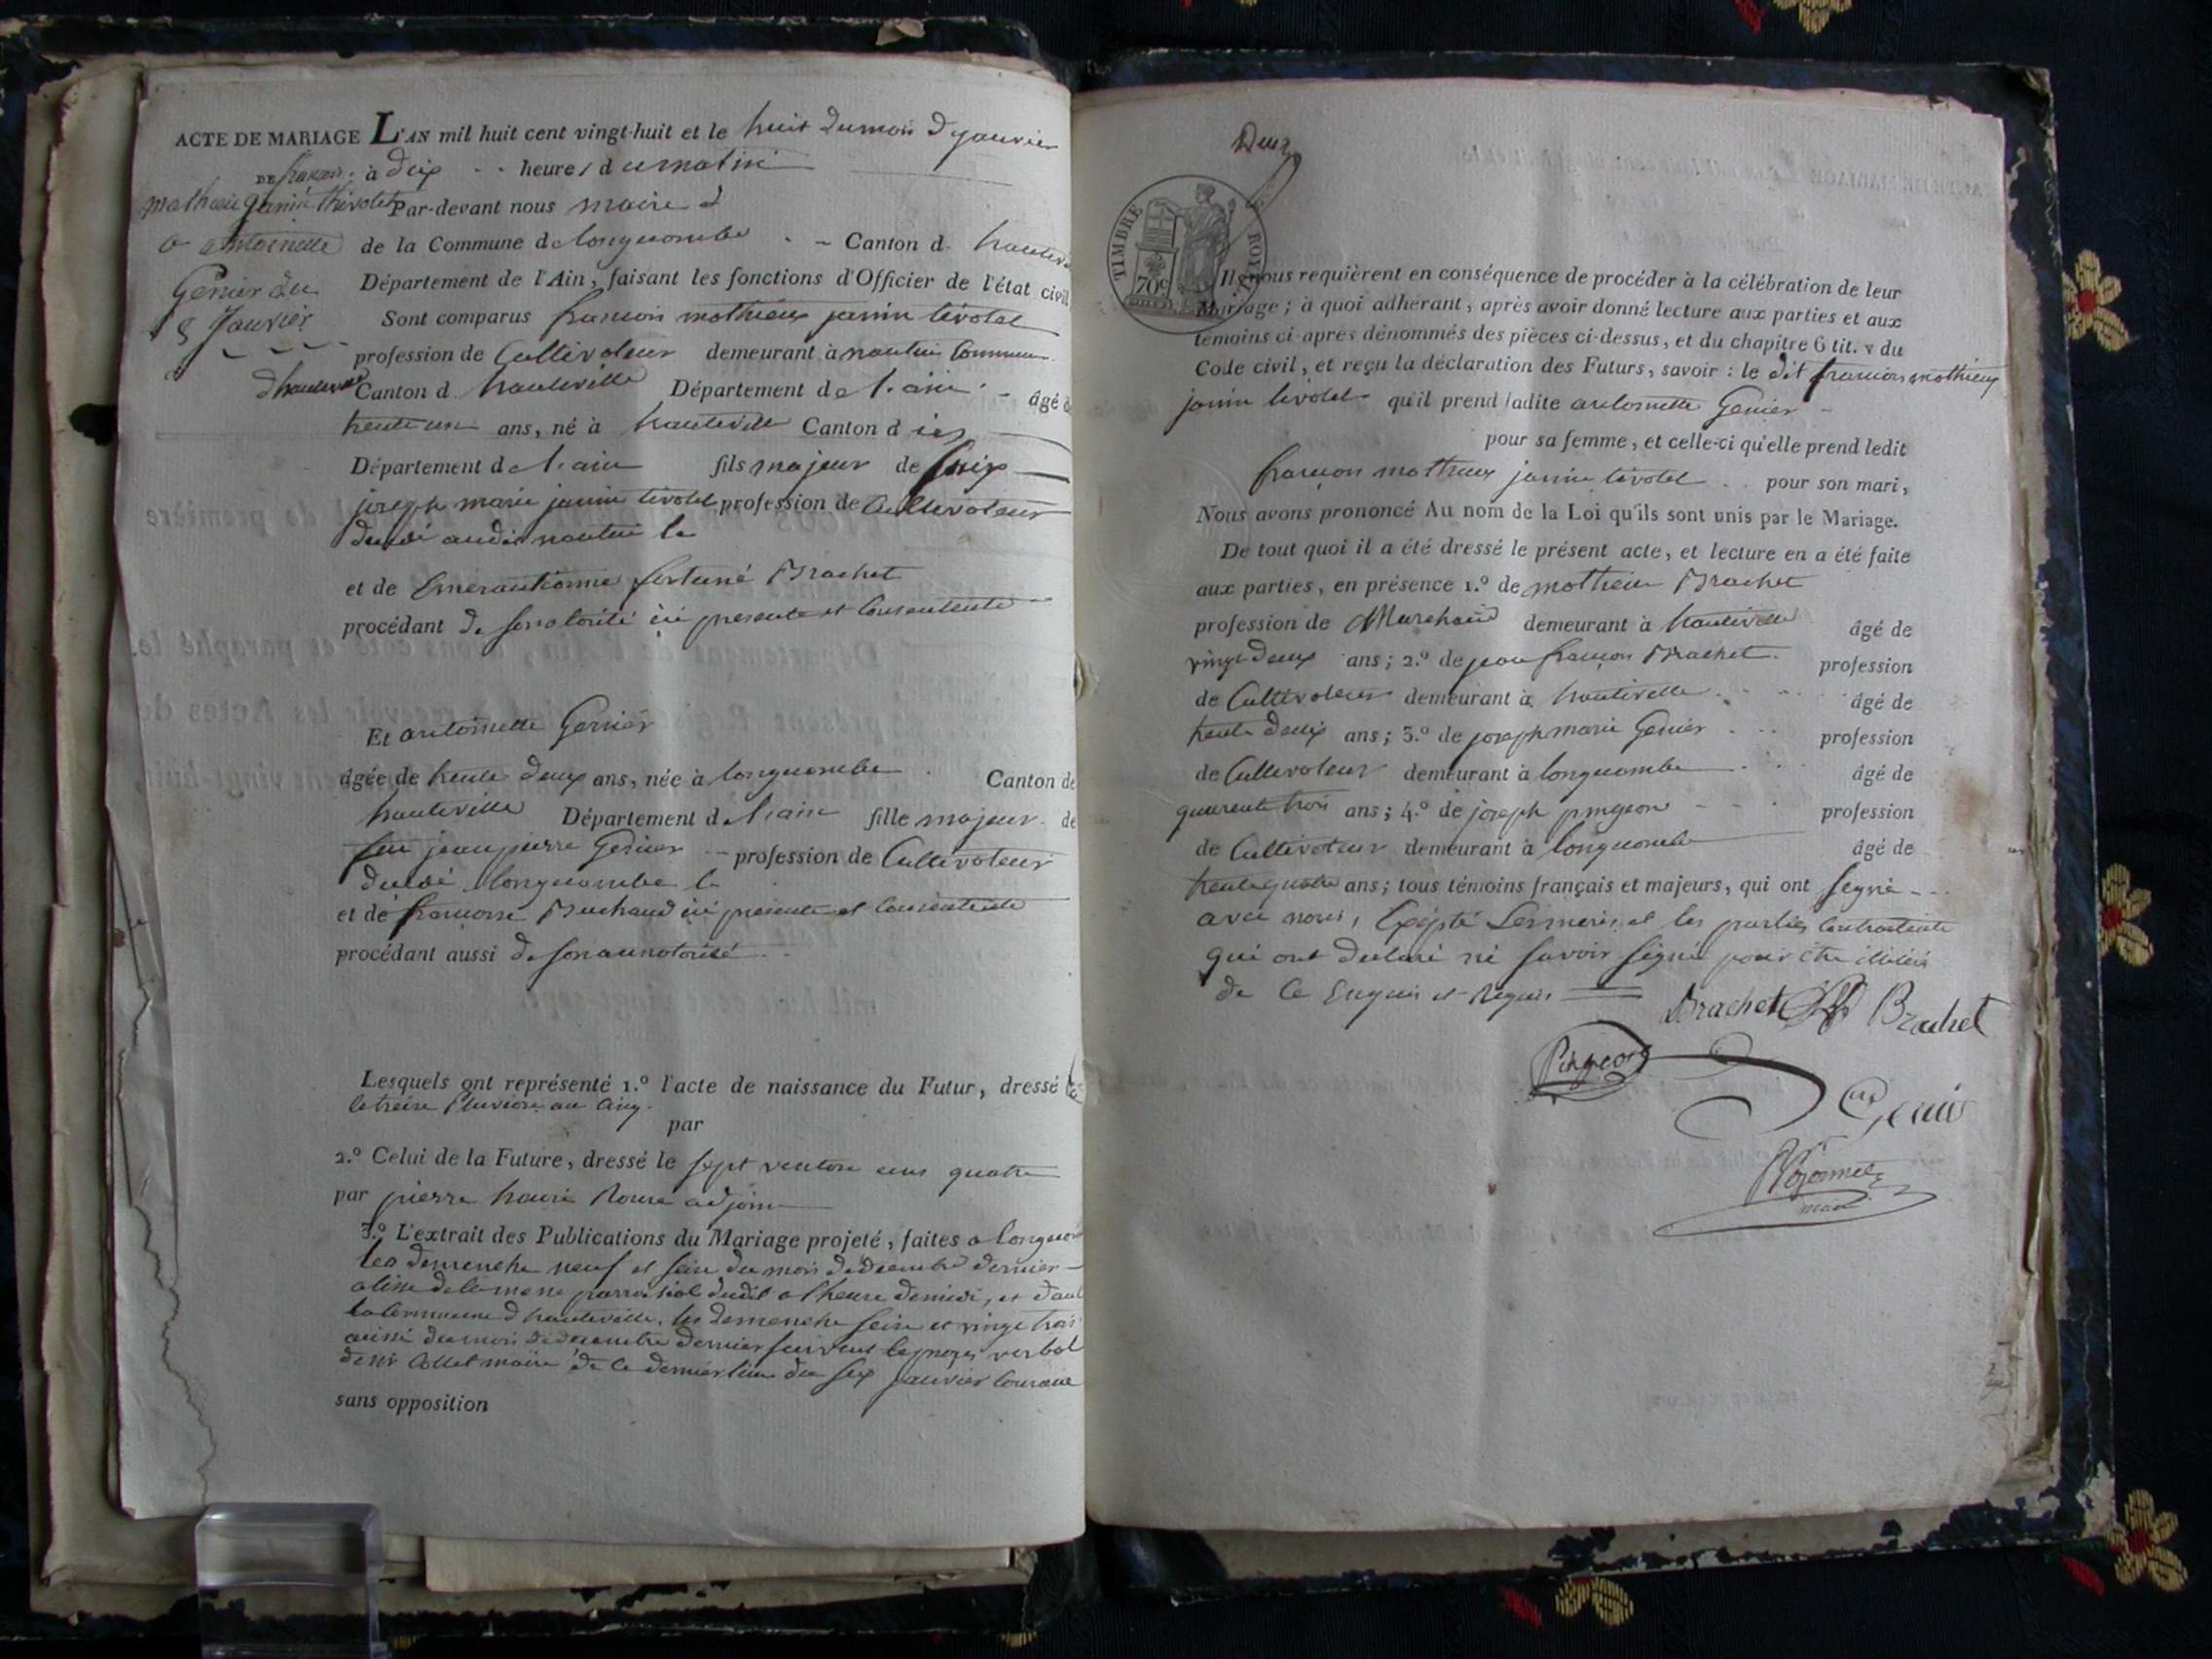 ACTE DE MARIAGE L'AN mil huit cent vingt-huit et le huit du mois d janvier
DE françois à dix heures du matin
mathieu janin thivolet Par-devant nous maire d
a antoinette de la Commune de longecombe Canton d hauteville
Genier du Département de l'Ain, faisant les fonctions d'Officier de l'état civil
8 Janvier Sont comparus françois mathieux janin tivolet
profession de Cultivateur demeurant à nantui Commune
d'hauteville Canton d hauteville Département de l'ain âgé de
trente un ans, né à hauteville Canton d
Département de l'ain fils majeur de
joseph marie janin tivolet profession de Cultivateur
audit nantui le
et de fortuné Brachet
procédant de son presente et Consentente
Et antoinette Genier
âgée de trente deux ans, née à longecombe Canton de
hauteville Département de l'ain fille majeur de
feu jean pierre Genier profession de Cultivateur
longecombe le
et de françoise Buchaud ici présente et Consentente
procédant aussi de son
Lesquels ont représenté 1.º l'acte de naissance du Futur, dressé
le treise Pluviose an Cinq
par
2.º Celui de la Future, dressé le sept ventose ans quatre
par pierre adjoin
3.º L'extrait des Publications du Mariage projeté, faites a
les demenche neuf et seise du mois de décembre dernier
de la messe parroisial dudit a l'heure de midi, et dans
la Commune d hauteville, les demenche seise et vingt trois
aussi du mois de décembre dernier suivant le verbal
de mr Collet maire de Ce dernier lieu du six janvier Courant
sans opposition
Deux
TIMBRE ROYAL
70c
Ils nous requièrent en conséquence de procéder à la célébration de leur
Mariage; à quoi adhérant, après avoir donné lecture aux parties et aux
témoins ci-après dénommés des pièces ci-dessus, et du chapitre 6 tit. v du
Code civil, et reçu la déclaration des Futurs, savoir: le dit françois mathieux
janin tivolet qu'il prend ladite antoinette Genier
pour sa femme, et celle-ci qu'elle prend ledit
françois mathieux janin tivolet pour son mari,
Nous avons prononcé Au nom de la Loi qu'ils sont unis par le Mariage.
De tout quoi il a été dressé le présent acte, et lecture en a été faite
aux parties, en présence 1.º de mathieu Brachet
profession de Marchand demeurant à hauteville âgé de
vingt deux ans; 2.º de jean françois Brachet profession
de Cultivateur demeurant à hauteville âgé de
trente deux ans; 3.º de joseph marie Genier profession
de Cultivateur demeurant à longecombe âgé de
quarente trois ans; 4.º de joseph pingeon profession
de Cultivateur demeurant à longecombe âgé de
trente quatre ans; tous témoins français et majeurs, qui ont segné
avec nous, Exépté Les meres et les parties Contractente
qui ont declaré ne savoir signé pour être
de Ce Enquis et Requis
Brachet Brachet
Pingeon
Genier
maire